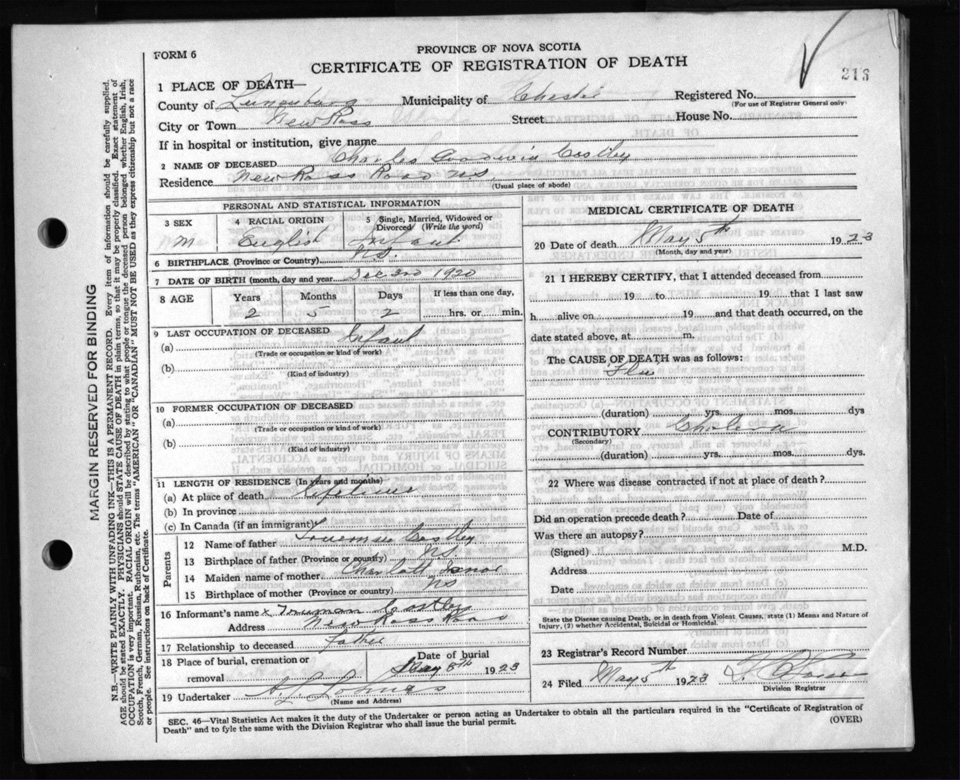 FORM 6
PROVINCE OF NOVA SCOTIA
CERTIFICATE OF REGISTRATION OF DEATH
216
1 PLACE OF DEATH—
County of Lunenburg Municipality of Chester Registered No.
(For use of Registrar General only)
City or Town New Ross Street House No.
If in hospital or institution, give name
2 NAME OF DECEASED Charles Goodwin Costley
Residence New Ross Road N.S.
(Usual place of abode)
PERSONAL AND STATISTICAL INFORMATION
3 SEX M
4 RACIAL ORIGIN English
5 Single, Married, Widowed or Divorced (Write the word) Infant
6 BIRTHPLACE (Province or Country) N.S.
7 DATE OF BIRTH (month, day and year) Dec 3rd 1920
8 AGE Years Months Days If less than one day,
2 5 2 hrs. or min.
9 LAST OCCUPATION OF DECEASED
(a) Infant
(Trade or occupation or kind of work)
(b)
(Kind of industry)
10 FORMER OCCUPATION OF DECEASED
(a)
(Trade or occupation or kind of work)
(b)
(Kind of industry)
11 LENGTH OF RESIDENCE (In years and months)
(a) At place of death Lifetime
(b) In province
(c) In Canada (if an immigrant)
Parents
12 Name of father Costley
13 Birthplace of father (Province or country) N.S.
14 Maiden name of mother Charlott
15 Birthplace of mother (Province or country) NS
16 Informant's name x Truman Costley
Address New Ross Road
17 Relationship to deceased father
18 Place of burial, cremation or removal
Date of burial May 8th 1923
19 Undertaker
(Name and Address)
MEDICAL CERTIFICATE OF DEATH
20 Date of death May 5th 1923
(Month, day and year)
21 I HEREBY CERTIFY, that I attended deceased from
19 to 19 that I last saw
h alive on 19 and that death occurred, on the
date stated above, at m.
The CAUSE OF DEATH was as follows:
Flu
(duration) yrs. mos. dys
CONTRIBUTORY Cholera
(Secondary)
(duration) yrs. mos. dys.
22 Where was disease contracted if not at place of death?
Did an operation precede death? Date of
Was there an autopsy?
(Signed) M.D.
Address
Date
State the Disease causing Death, or in death from Violent Causes, state (1) Means and Nature of
Injury, (2) whether Accidental, Suicidal or Homicidal.
23 Registrar's Record Number
24 Filed May 5th 1923
Division Registrar
SEC. 46—Vital Statistics Act makes it the duty of the Undertaker or person acting as Undertaker to obtain all the particulars required in the "Certificate of Registration of
Death" and to fyle the same with the Division Registrar who shall issue the burial permit.
(OVER)
MARGIN RESERVED FOR BINDING
N.B.—WRITE PLAINLY WITH UNFADING INK—THIS IS A PERMANENT RECORD. Every item of information should be carefully supplied.
AGE should be stated EXACTLY. PHYSICIANS should STATE CAUSE OF DEATH in plain terms, so that it may be properly classified. Exact statement of
OCCUPATION is very important. RACIAL ORIGIN will be described by stating to what people or tongue the deceased person belonged whether English, Irish,
Scotch, French, German, Russian, Ruthenian, etc. The terms "AMERICAN" OR "CANADIAN" MUST NOT BE USED as they express citizenship but not a race
or people. See instructions on back of Certificate.